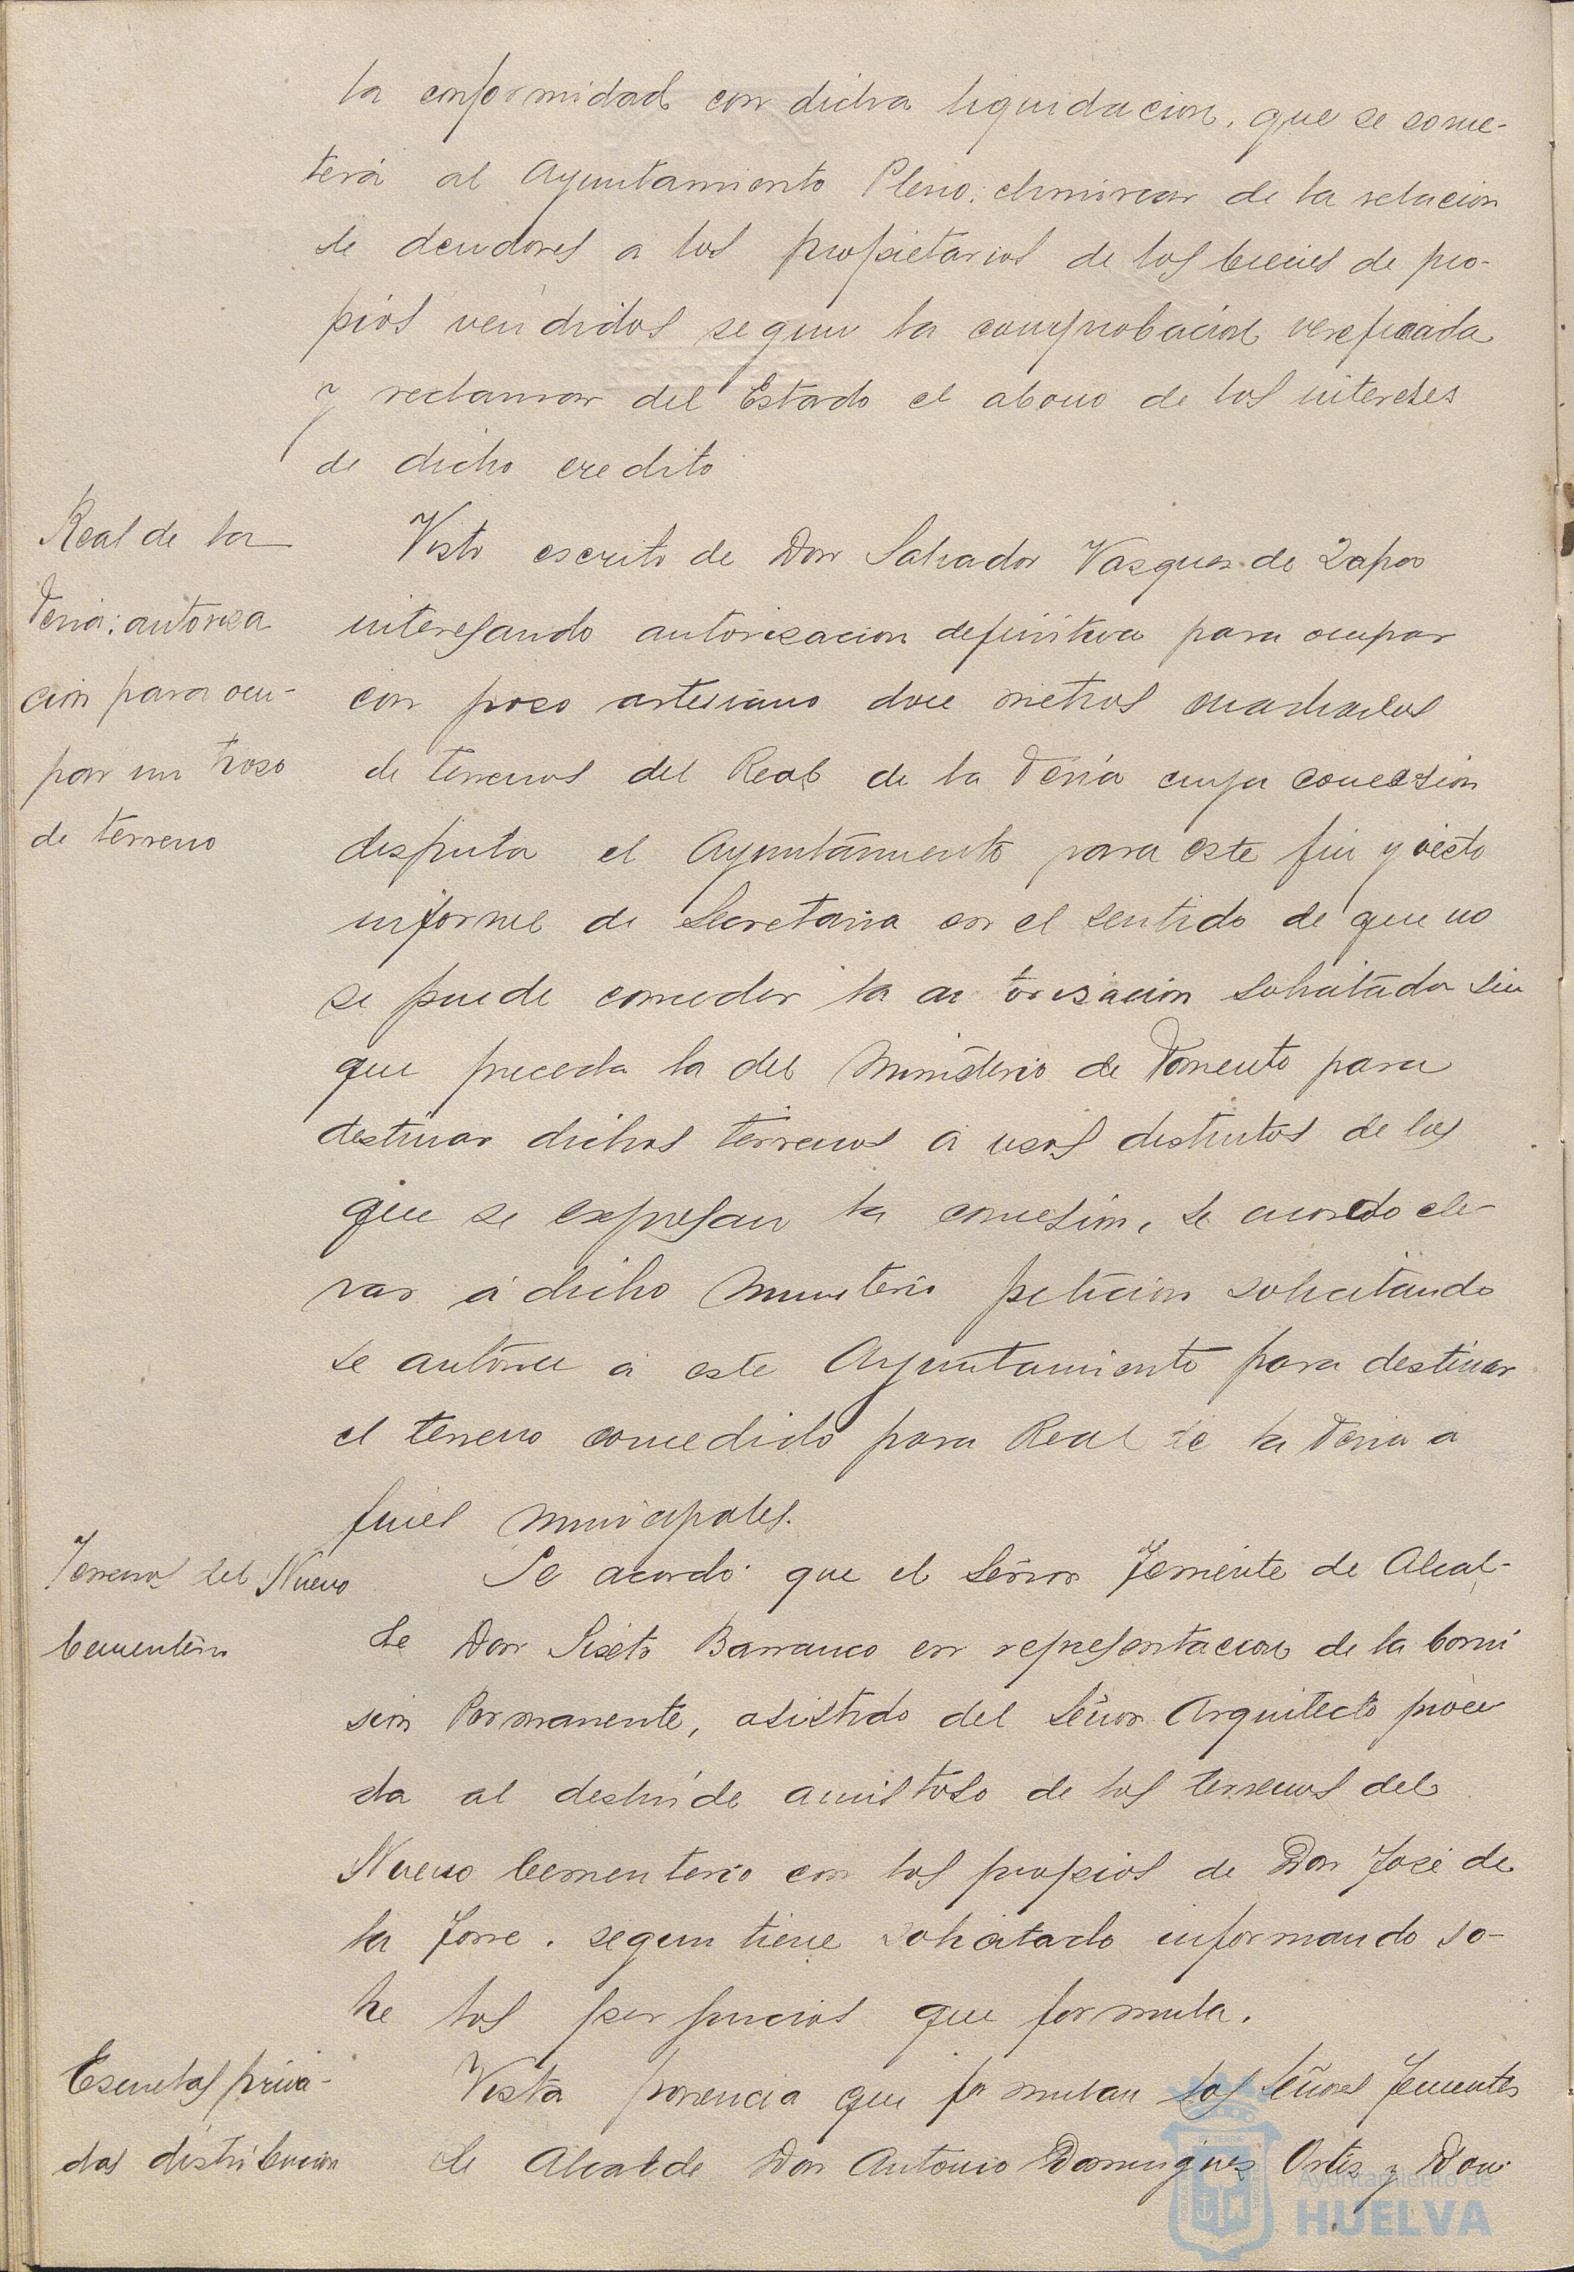 la conformidad con dicha liquidacion, que se some-
terá al Ayuntamiento Pleno: eliminar de la relacion
de deudores a los propietarios de los bienes de pro-
pios vendidos segun la comprobacion verificada
y reclamar del Estado el abono de los intereses
de dicho credito
Real de la
Feria: autoriza
cion para ocu-
par un trozo
de terreno
Visto escrito de Don Salvador Vazquez de Zapa
interesando autorizacion definitiva para ocupar
con pozo artesiano doce metros cuadrados
de terrenos del Real de la Feria cuya concesion
disfruta el Ayuntamiento para este fin y visto
informe de Secretaria en el sentido de que no
se puede conceder la autorizacion solicitada sin
que preceda la del Ministerio de Fomento para
destinar dichos terrenos a usos distintos de los
que se expresan la concesión, se acordo ele-
var á dicho Ministerio peticion solicitando
se autorice a este Ayuntamiento para destinar
el terreno concedido para Real de la Feria a
fines municipales.
Terrenos del Nuevo
Cementerio
Se acordó que el Señor Teniente de Alcal-
de Don Sixto Barranco en representacion de la Comi
sion Permanente, asistido del Señor Arquitecto proce
da al deslinde amistoso de los terrenos del
Nuevo Cementerio con los propios de Don José de
la Torre, segun tiene solicitado informando so-
bre los perjuicios que formula.
Escuelas priva-
das distribucion
Vista ponencia que formulan los Señores Tenientes
de Alcalde Don Antonio Dominguez Ortiz y Don
Ayuntamiento de
HUELVA